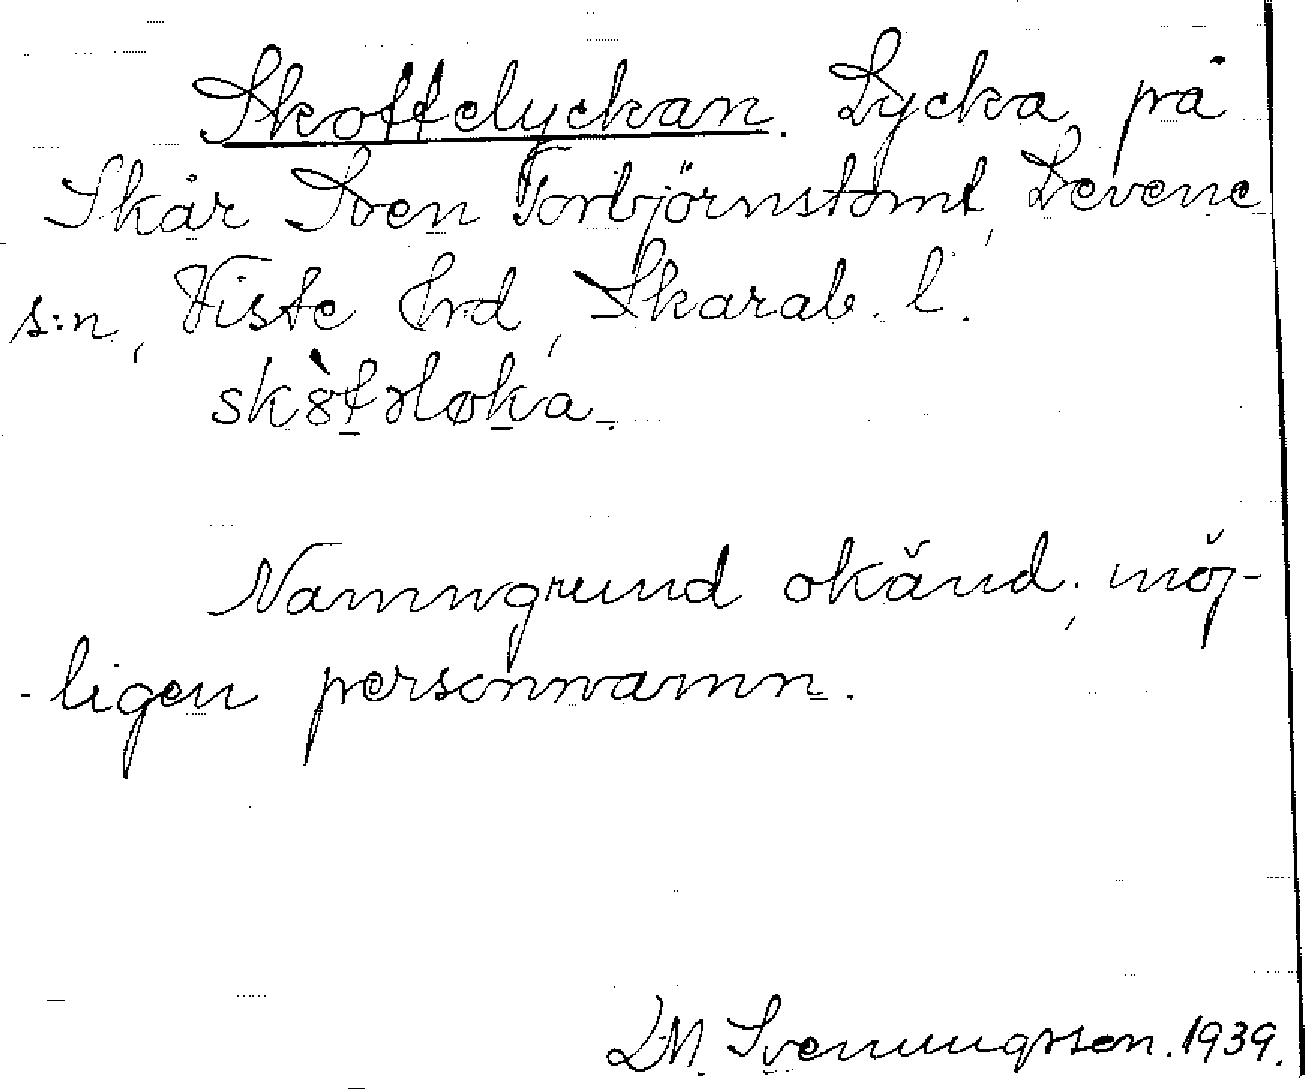 Skottelyckan. Lycka på
Skår Sven Torbjörnstomt, Levene
s:n, Viste hrd, Skarab. l.
Namngrund okänd; möj-
-ligen personnamn.
D.M. Svenungsson. 1939.